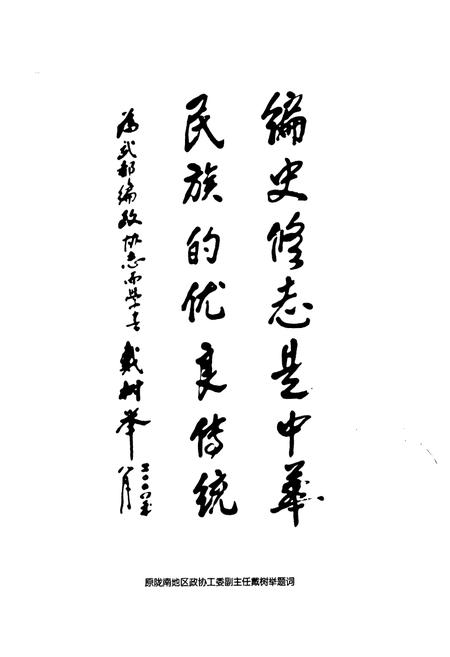 编史修志是中華
民族的优良传统
為武都编政协志而学书 戴树举
八月
原陇南地区政协工委副主任戴树举题词